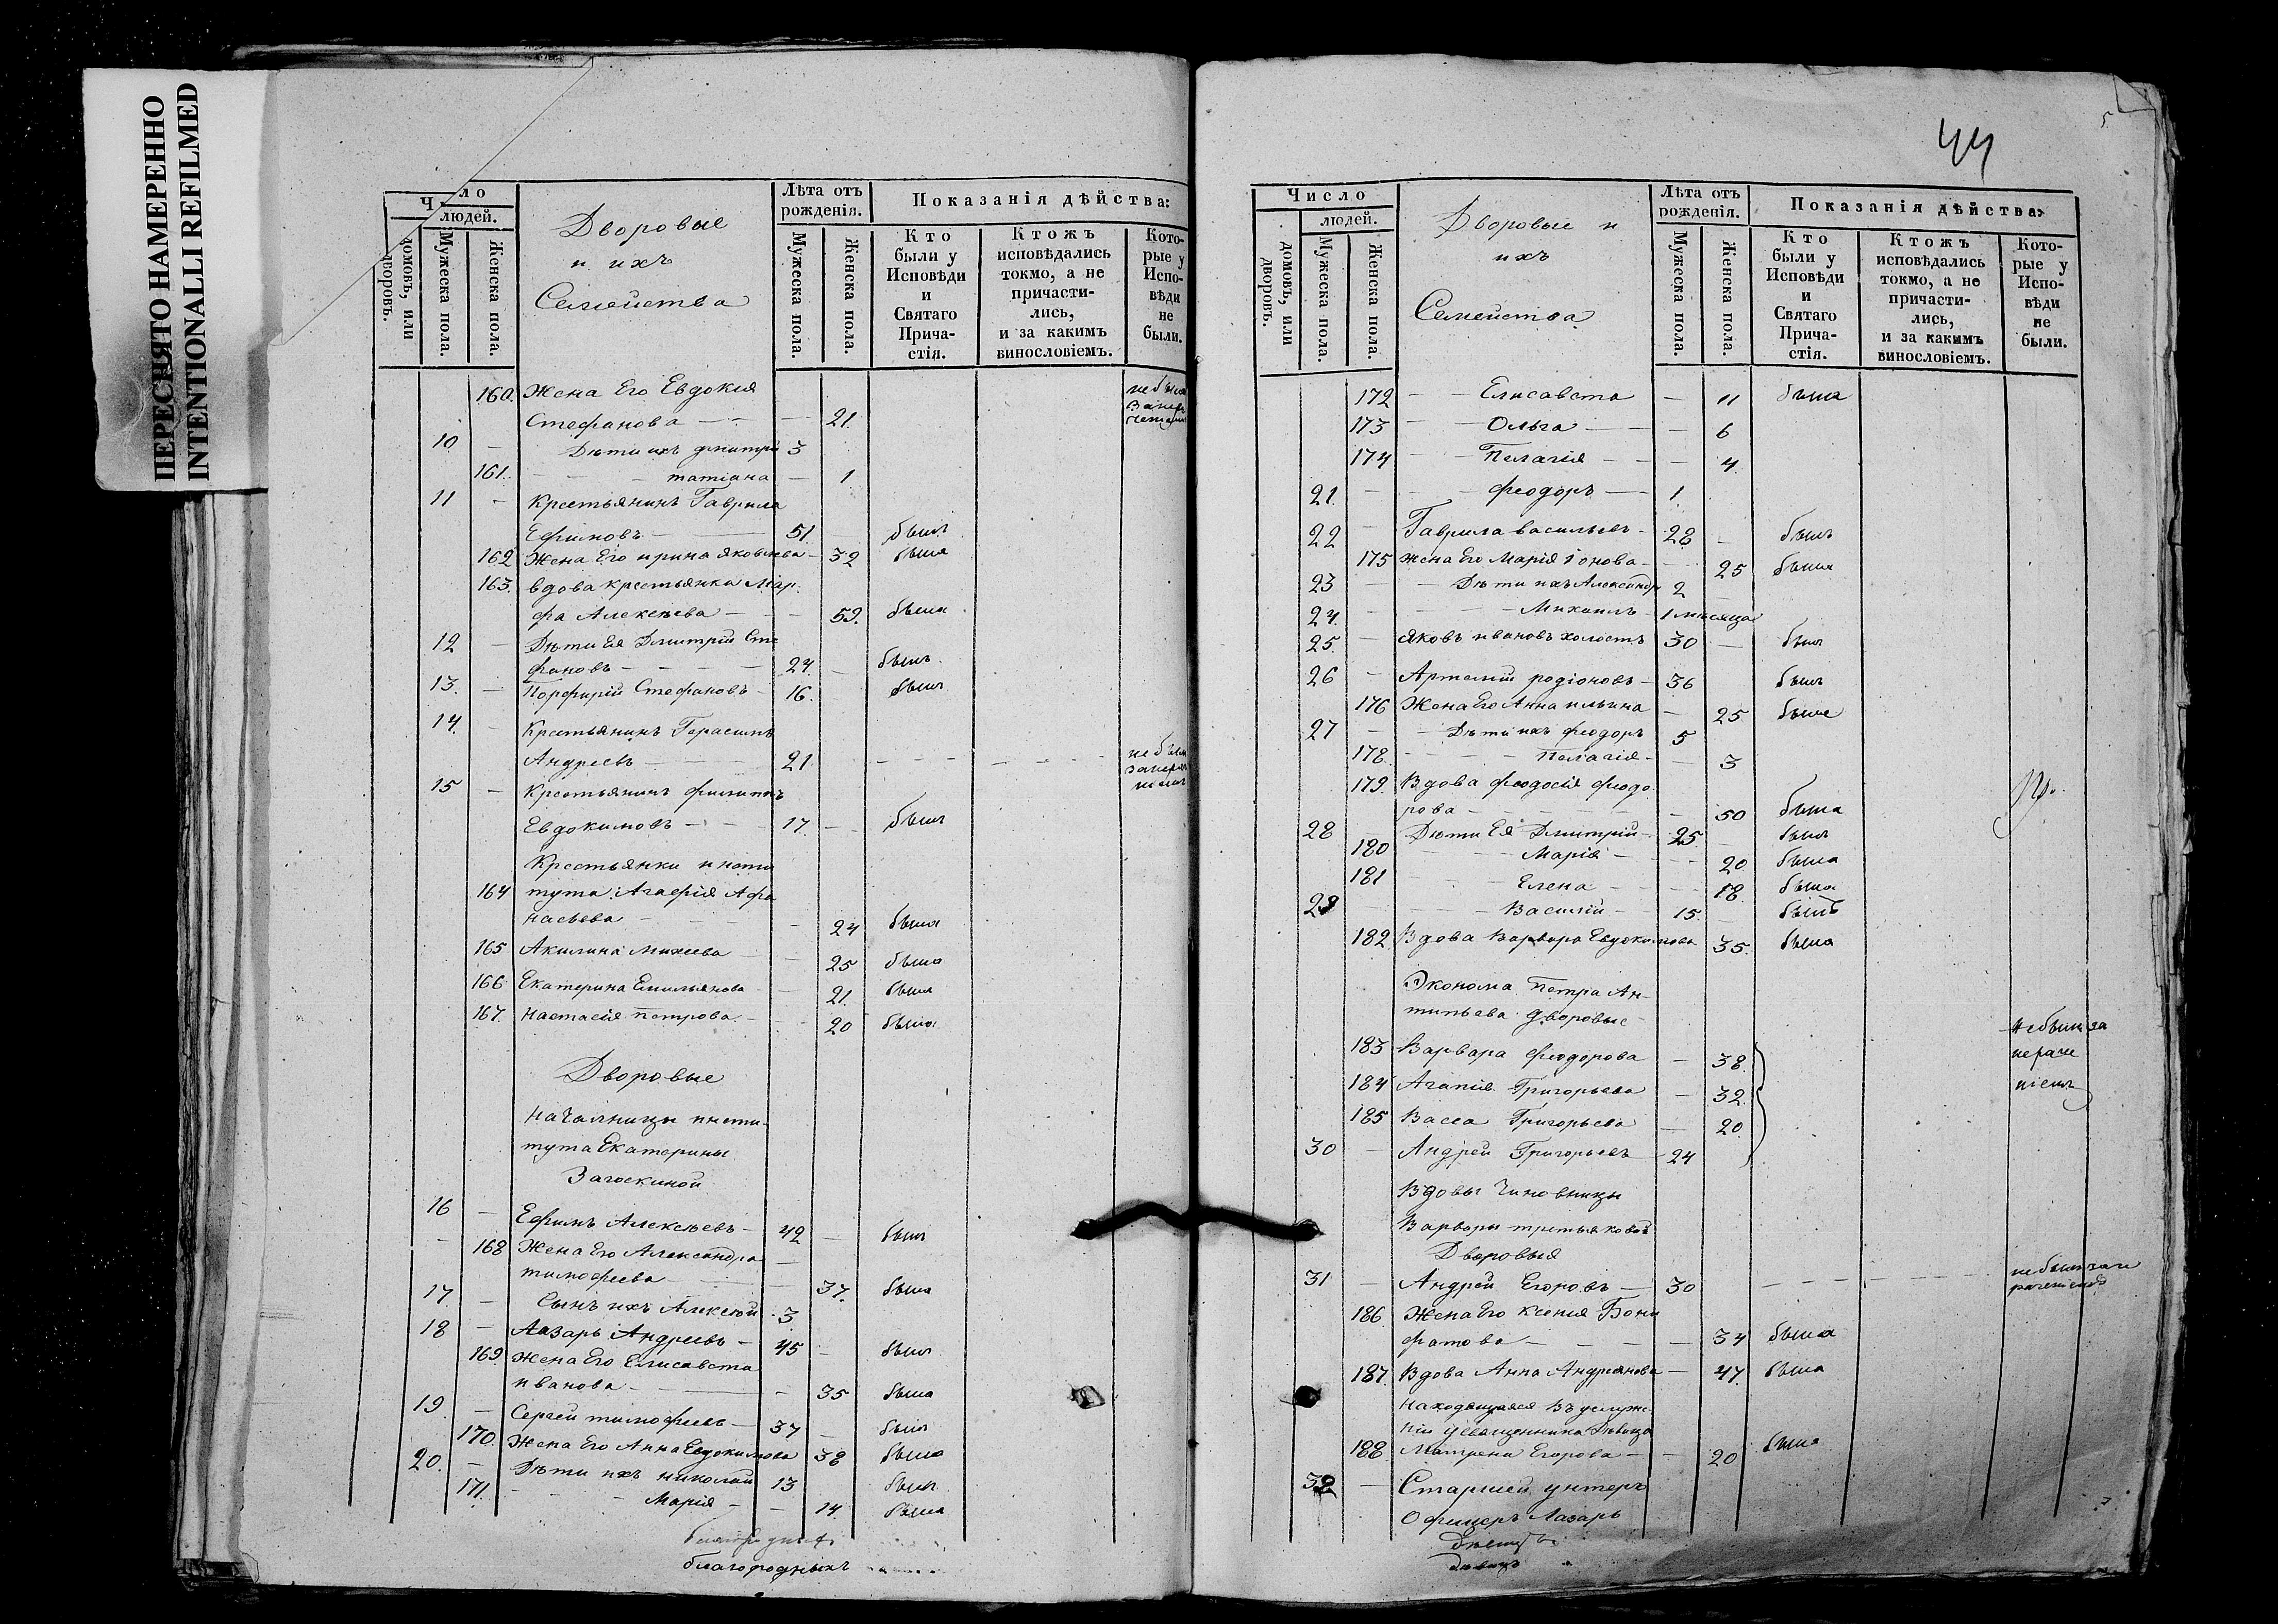 ПЕРЕСНЯТО НАМЕРЕННО
INTENTIONALLI REFILMED
Число
людей.
домовъ, или дворовъ.
Мужеска пола.
Женска пола.
Дворовые
и ихъ
Семейства
Лѣта отъ рожденія.
Мужеска пола.
Женска пола.
Показанія дѣйства:
Кто были у Исповѣди и Святаго Прича-стія.
Ктожъ исповѣдались токмо, а не причасти-лись, и за какимъ винословіемъ.
Кото-рые у Испо-вѣди не были.
160. Жена Его Евдокия
Стефанова — — 21.
10 — Дѣти ихъ Дмитрій 3
161. — татіана — 1
11 — Крестьянинъ Гаврила
Ефимовъ — 51. былъ
162 Жена Его ирина Яковлева — 32 была
163. вдова крестьянка Мар
фа Алексѣева — — 52. была
12 — Дѣти Ея Дмитрій Сте
фановъ — — — 24. — былъ
13. — Порфирій Стефановъ — 16. былъ
14. — Крестьянинъ Герасимъ
Андреевъ — 21
15 — Крестьянинъ филиппъ
Евдокимовъ — 17. — былъ
Крестьянки инсти
164 тута: Агафія Афа
насьева — — 24 была
165 Акилина Михеева — — 25 была
166 Екатерина Емильянова — — 21. была
167. Настасія Петрова. — — 20 была
Дворовые
Началницы инсти
тута Екатерины
Загоскиной
16 — Ефимъ Алексѣевъ — 42 — былъ
168 Жена Его Александра
тимофеева — — 37. была
17. — Сынъ ихъ Алексѣй 3
18 — Лазарь Андреевъ — 45 — былъ
169 Жена Его Елисавета
иванова — — 35 была
19. — Сергей тимофеевъ — 37 — былъ
170. Жена Его Анна Евдокимова 38 была
20. — Дѣти ихъ николай 13 былъ
171. — — Марія — — 14. была
благородныхъ
44
Число
людей.
домовъ, или дворовъ.
Мужеска пола.
Женска пола.
Дворовые и
ихъ
Семейства
Лѣта отъ рожденія.
Мужеска пола.
Женска пола.
Показанія дѣйства:
Кто были у Исповѣди и Святаго Прича-стія.
Ктожъ исповѣдались токмо, а не причасти-лись, и за какимъ винословіемъ.
Кото-рые у Испо-вѣди не были.
172 — — Елисавета — 11 была
173 — — Ольга — — 6
174 — — Пелагія — — 4
21. — — феодоръ — 1.
22 — Гаврила васильевъ — 28 — былъ
175 жена Его Марія Іонова — — 25 была
23 — — Дѣти ихъ Александръ 2
24. — — Михаилъ — 1 мѣсяца
25. — яковъ ивановъ холостъ 30 — былъ
26 — Артемій родіоновъ — 36 былъ
176 Жена Его Анна ильина — 25 была
27 — — Дѣти ихъ феодоръ 5
178. — — Пелагія — — 3
179. Вдова феодосія феодо
рова — — 50 была
28 Дѣти Ея Дмитрій — 25 — былъ
180 — Марія — — 20 была
181 — Елена — — 18. была
29 — — Василій — 15. — былъ
182. Вдова Варвара Евдокимова 35. была
Эконома Петра Ан-
типьева дворовые
183 Варвара феодорова — 38.
184 Агапія Григорьева — 32.
185 Васса Григорьева — 20.
30 — Андрей Григорьевъ — 24
не были за
нераче
ніемъ
Вдовы Чиновницы
Варвары третьяковой
Дворовыя
31 — Андрей Егоровъ — 30
186. Жена Его Ксения Бони
фатова — — — 34 была
187. Вдова Анна Андреянова — 47. была
Находящаяся въ услуже
ніи Священника Дѣвица
188. Матрена Егорова — — 20 была
32 — Старшей унтеръ
Офицеръ Лазарь
дѣвицъ